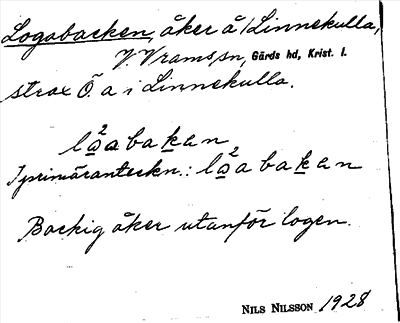 Logabacken, åker å Linnekulla,
V. Vrams sn, Gärds hd, Krist. l.
strax Ö. a i Linnekulla.
la²abakan
I primäranteckn.: lå²abakan
Backig åker utanför logen.
NILS NILSSON 1928